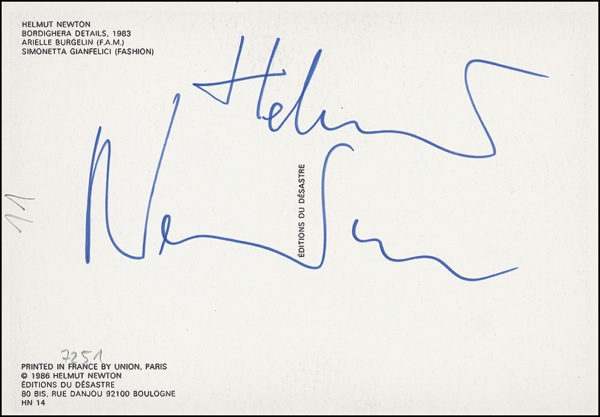 HELMUT NEWTON
BORDIGHERA DETAILS, 1983
ARIELLE BURGELIN (F.A.M.)
SIMONETTA GIANFELICI (FASHION)
Helmut
Newton
11
ÉDITIONS DU DÉSASTRE
7251
PRINTED IN FRANCE BY UNION, PARIS
© 1986 HELMUT NEWTON
ÉDITIONS DU DÉSASTRE
80 BIS, RUE DANJOU 92100 BOULOGNE
HN 14